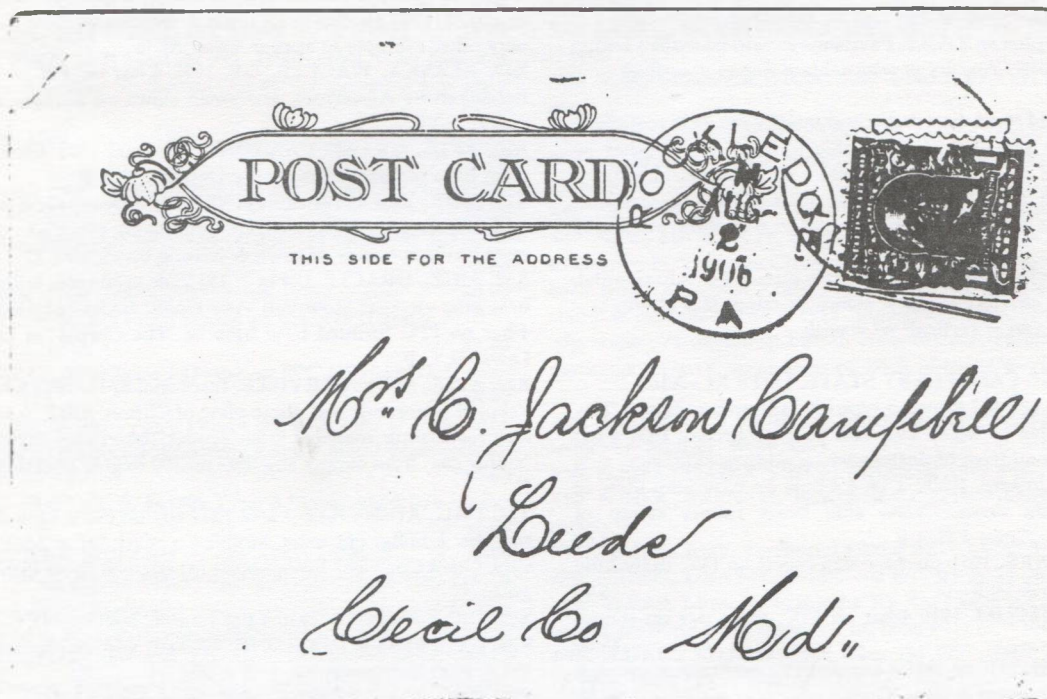 POST CARD
THIS SIDE FOR THE ADDRESS
2
1906
PA
Mrs. C. Jackson Campbell
Leeds
Cecil Co Md.,